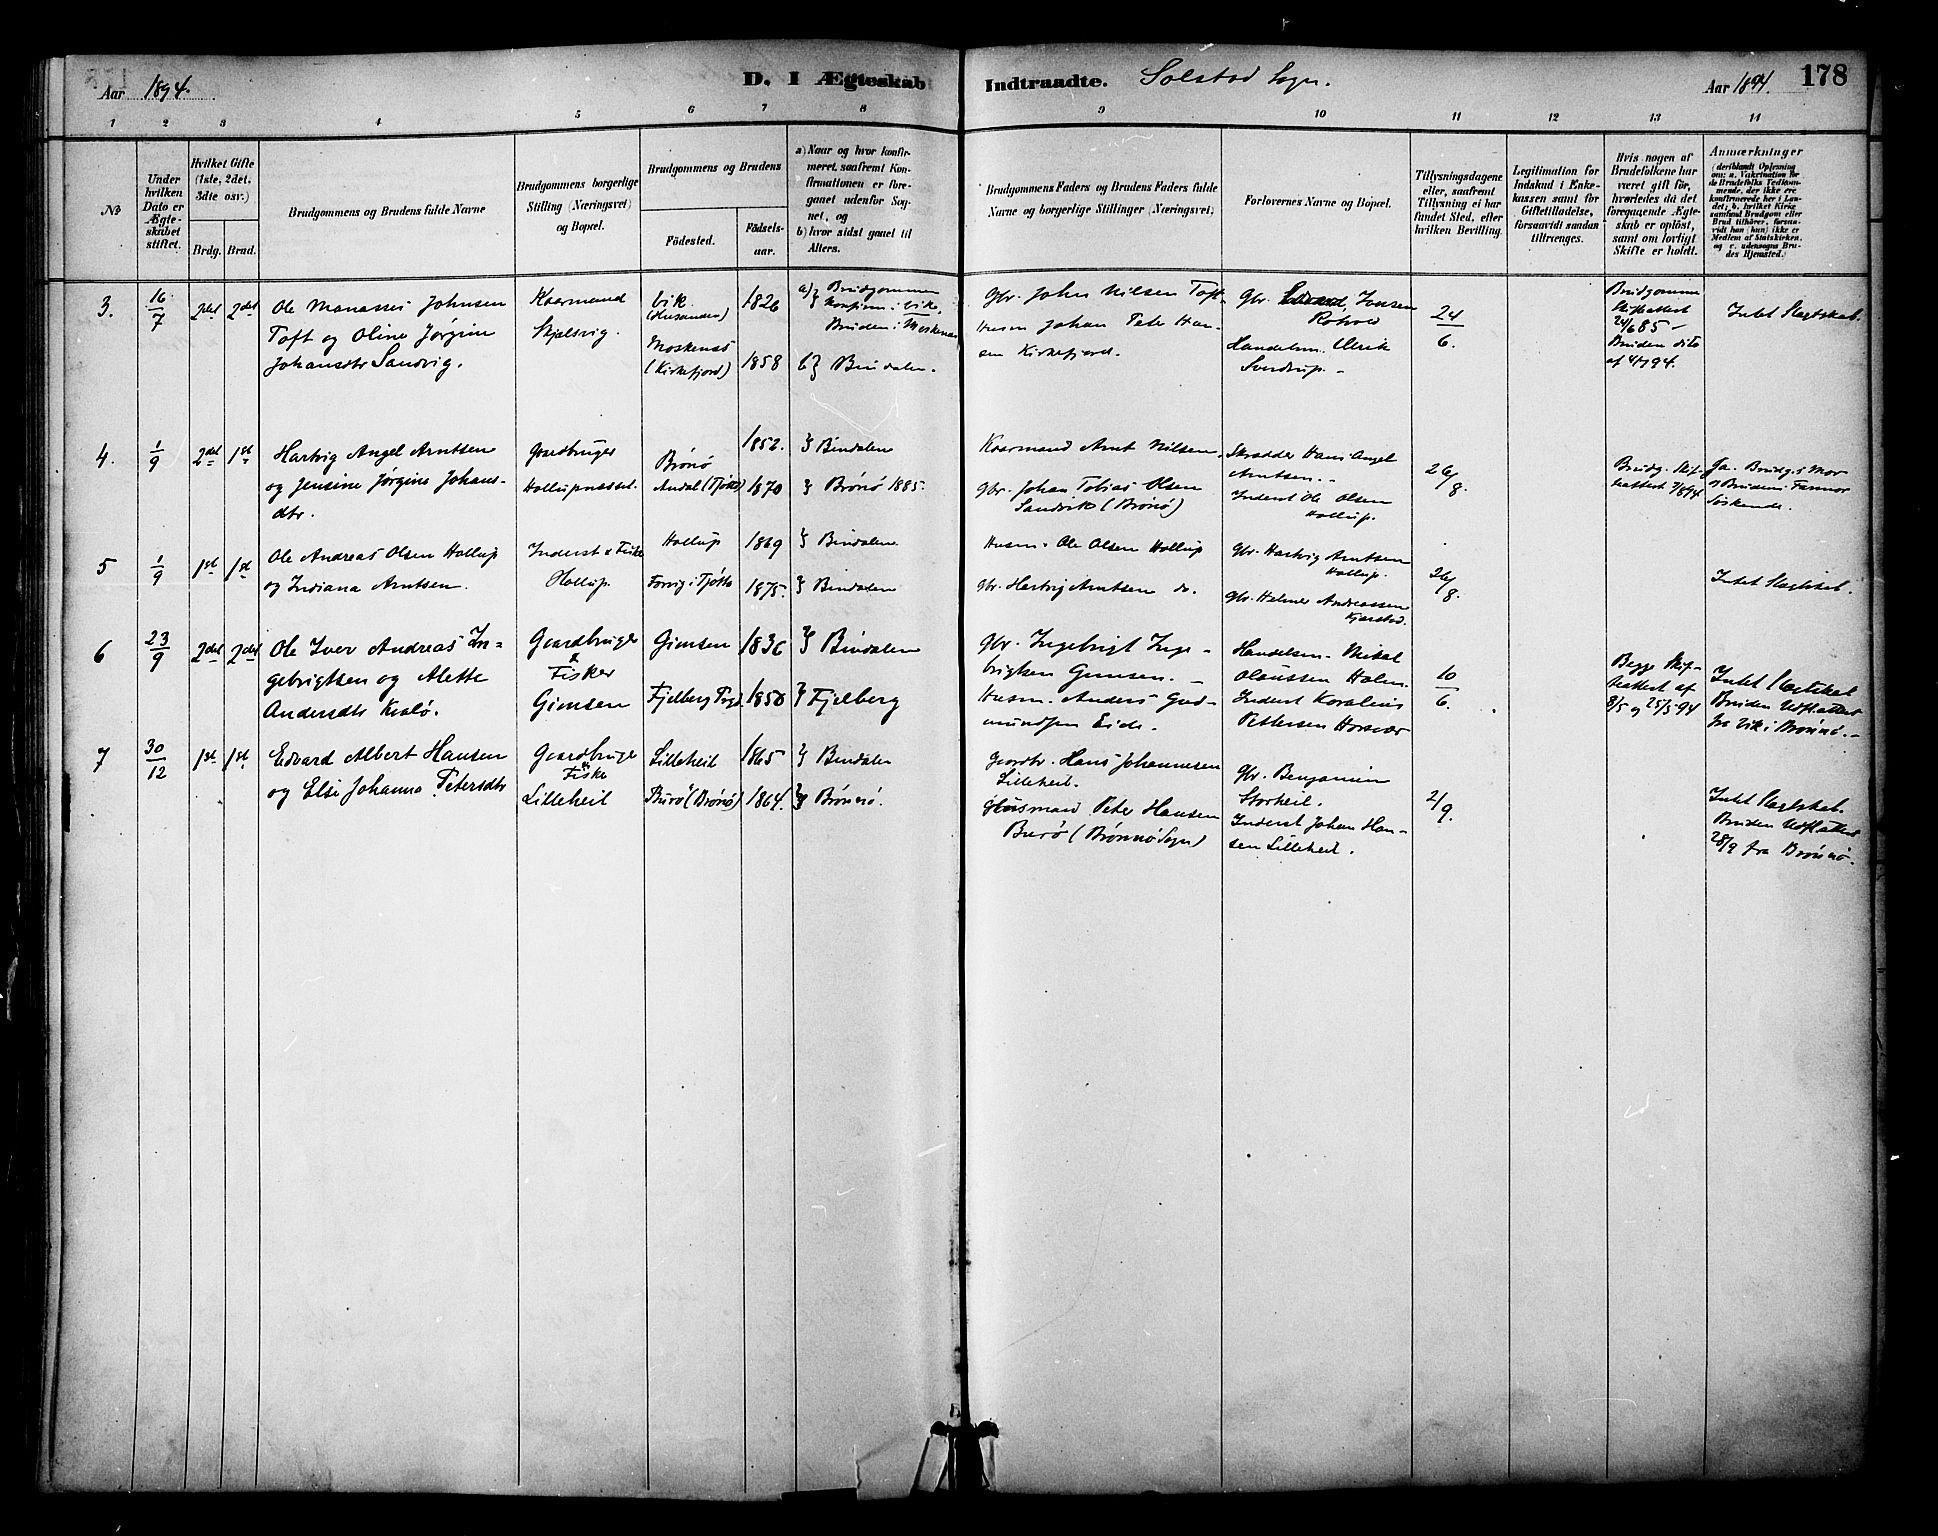 Aar 1894.
D. I Ægteskab Indtraadte.
Solstad Sogn.
Aar 1894.
178
1 2 3 4 5 6 7 8 9 10 11 12 13 14
No
Under hvilken Dato er Ægteskabet stiftet.
Hvilket Gifte (1ste, 2det, 3dte osv.)
Brdg. Brud.
Brudgommens og Brudens fulde Navne
Brudgommens borgerlige Stilling (Næringsvei) og Bopæl.
Brudgommens og Brudens
Födested.
Födselsaar.
a) Naar og hvor konfirmeret, saafremt Konfirmationen er foregaaet udenfor Sognet, og
b) hvor sidst gaaet til Alters.
Brudgommens Faders og Brudens Faders fulde Navne og borgerlige Stillinger (Næringsvei)
Forlovernes Navne og Bopæl.
Tillysningsdagene eller, saafremt Tillysning ei har fundet Sted, efter hvilken Bevilling.
Legitimation for Indskud i Enkekassen samt for Giftetilladelse, forsaavidt saadan tiltrænges.
Hvis nogen af Brudefolkene har været gift för, hvorledes da det foregaaende Ægteskab er oplöst, samt om lovligt Skifte er holdt.
Anmærkninger
(deriblandt Oplysning om: a. Vakcination for de Brudefolks Vedkommende, der ikke ere konfirmerede her i Landet; b. hvilket Kirkesamfund Brudgom eller Brud tilhörer, forsaavidt han (hun) ikke er Medlem af Statskirken, og c. udensogns Brudes Hjemsted.)
3.
16/7
2det 2det
Ole Manasses Johnsen
Toft og Oline Jørgine
Johansdtr Sandvig.
Kaarmand
Skjelsvig.
Vik
Moskenæs
(Kirkefjord)
1826
1858
a) Brudgommen
konfirm. i Vik.
Bruden i Moskenæs
b) Bindalen.
Gbr. John Nilsen Toft
Husm Johan Peter Han-
sen Kirkefjord.
Gbr. Edvard Jensen
Handelsm. Ulrik
Sverdrup.
24/6.
Brudgomme
Skifteattest
24/6 85 –
Bruden dito
af 4/7 94.
Intet Slegtskab.
4.
1/9
2det 1st
Hartvig Angel Arntsen
og Jensine Jørgine Johans-
dtr.
Gaardbruger
Hollupnesset.
Brønø
Andal (Tjøtta)
1852.
1870
Bindalen
Brønø 1885.
Kaarmand Arnt Nilsen.
Gbr. Johan Tobias Olsen
Sandvik (Brønø)
Skrædder Hans Angel
Arntsen.
Inderst Ole Olsen
Hollup.
26/8.
Brudg. Skif-
teattest 7/8 94
Ja. Brudg's Mor
og Brudens Farmor
Søskende.
5
1/9
1st 1st
Ole Andreas Olsen Hollup
og Indiana Arntsen.
Inderst & Fisker
Hollup.
Hollup
Forvig i Tjøtta
1869
1875.
Bindalen
Bindalen
Husm. Ole Olsen Hollup
Gbr. Hartvig Arntsen do.
Gbr. Hartvig Arntsen
Hollup.
Gbr. Helmer Andreassen
Kjærstad.
26/8.
Intet Slegtskab.
6
23/9
2det 2det
Ole Iver Andreas In-
gebrigtsen og Alette
Andersdtr Kvalø.
Gaardbruger
& Fisker
Gimsen
Gimsen
Fjelberg
1836
1850
Bindalen
Fjelberg
Gbr. Ingebrigt Inge-
brigtsen Gimsen.
Husm. Anders Gud-
mundsen Eide.
Handelsm. Mikal
Olaussen Holm.
Inderst Koralius
Pettersen Horsvær
10/6.
Begge Skif-
teattest af
8/5 og 25/5 94
Intet Slegtskab
Bruden Udflattest
fra Vik i Brønnø.
7
30/12
1st 1st
Edvard Albert Hansen
og Elsi Johanna Petersdtr
Gaardbruger
& Fisker
Lilleheil
Lilleheil
Burø (Brønø)
1865
1864.
Bindalen
Brønnø.
Gaardbr. Hans Johannesen
Lilleheil.
Husmand Peter Hansen
Burø (Brønnø Sogn)
Gbr. Benjamin
Storheil.
Inderst Johan Han-
sen Lilleheil.
2/9.
Intet Slegtskab.
Bruden Udflattest
28/9 fra Brønnø.